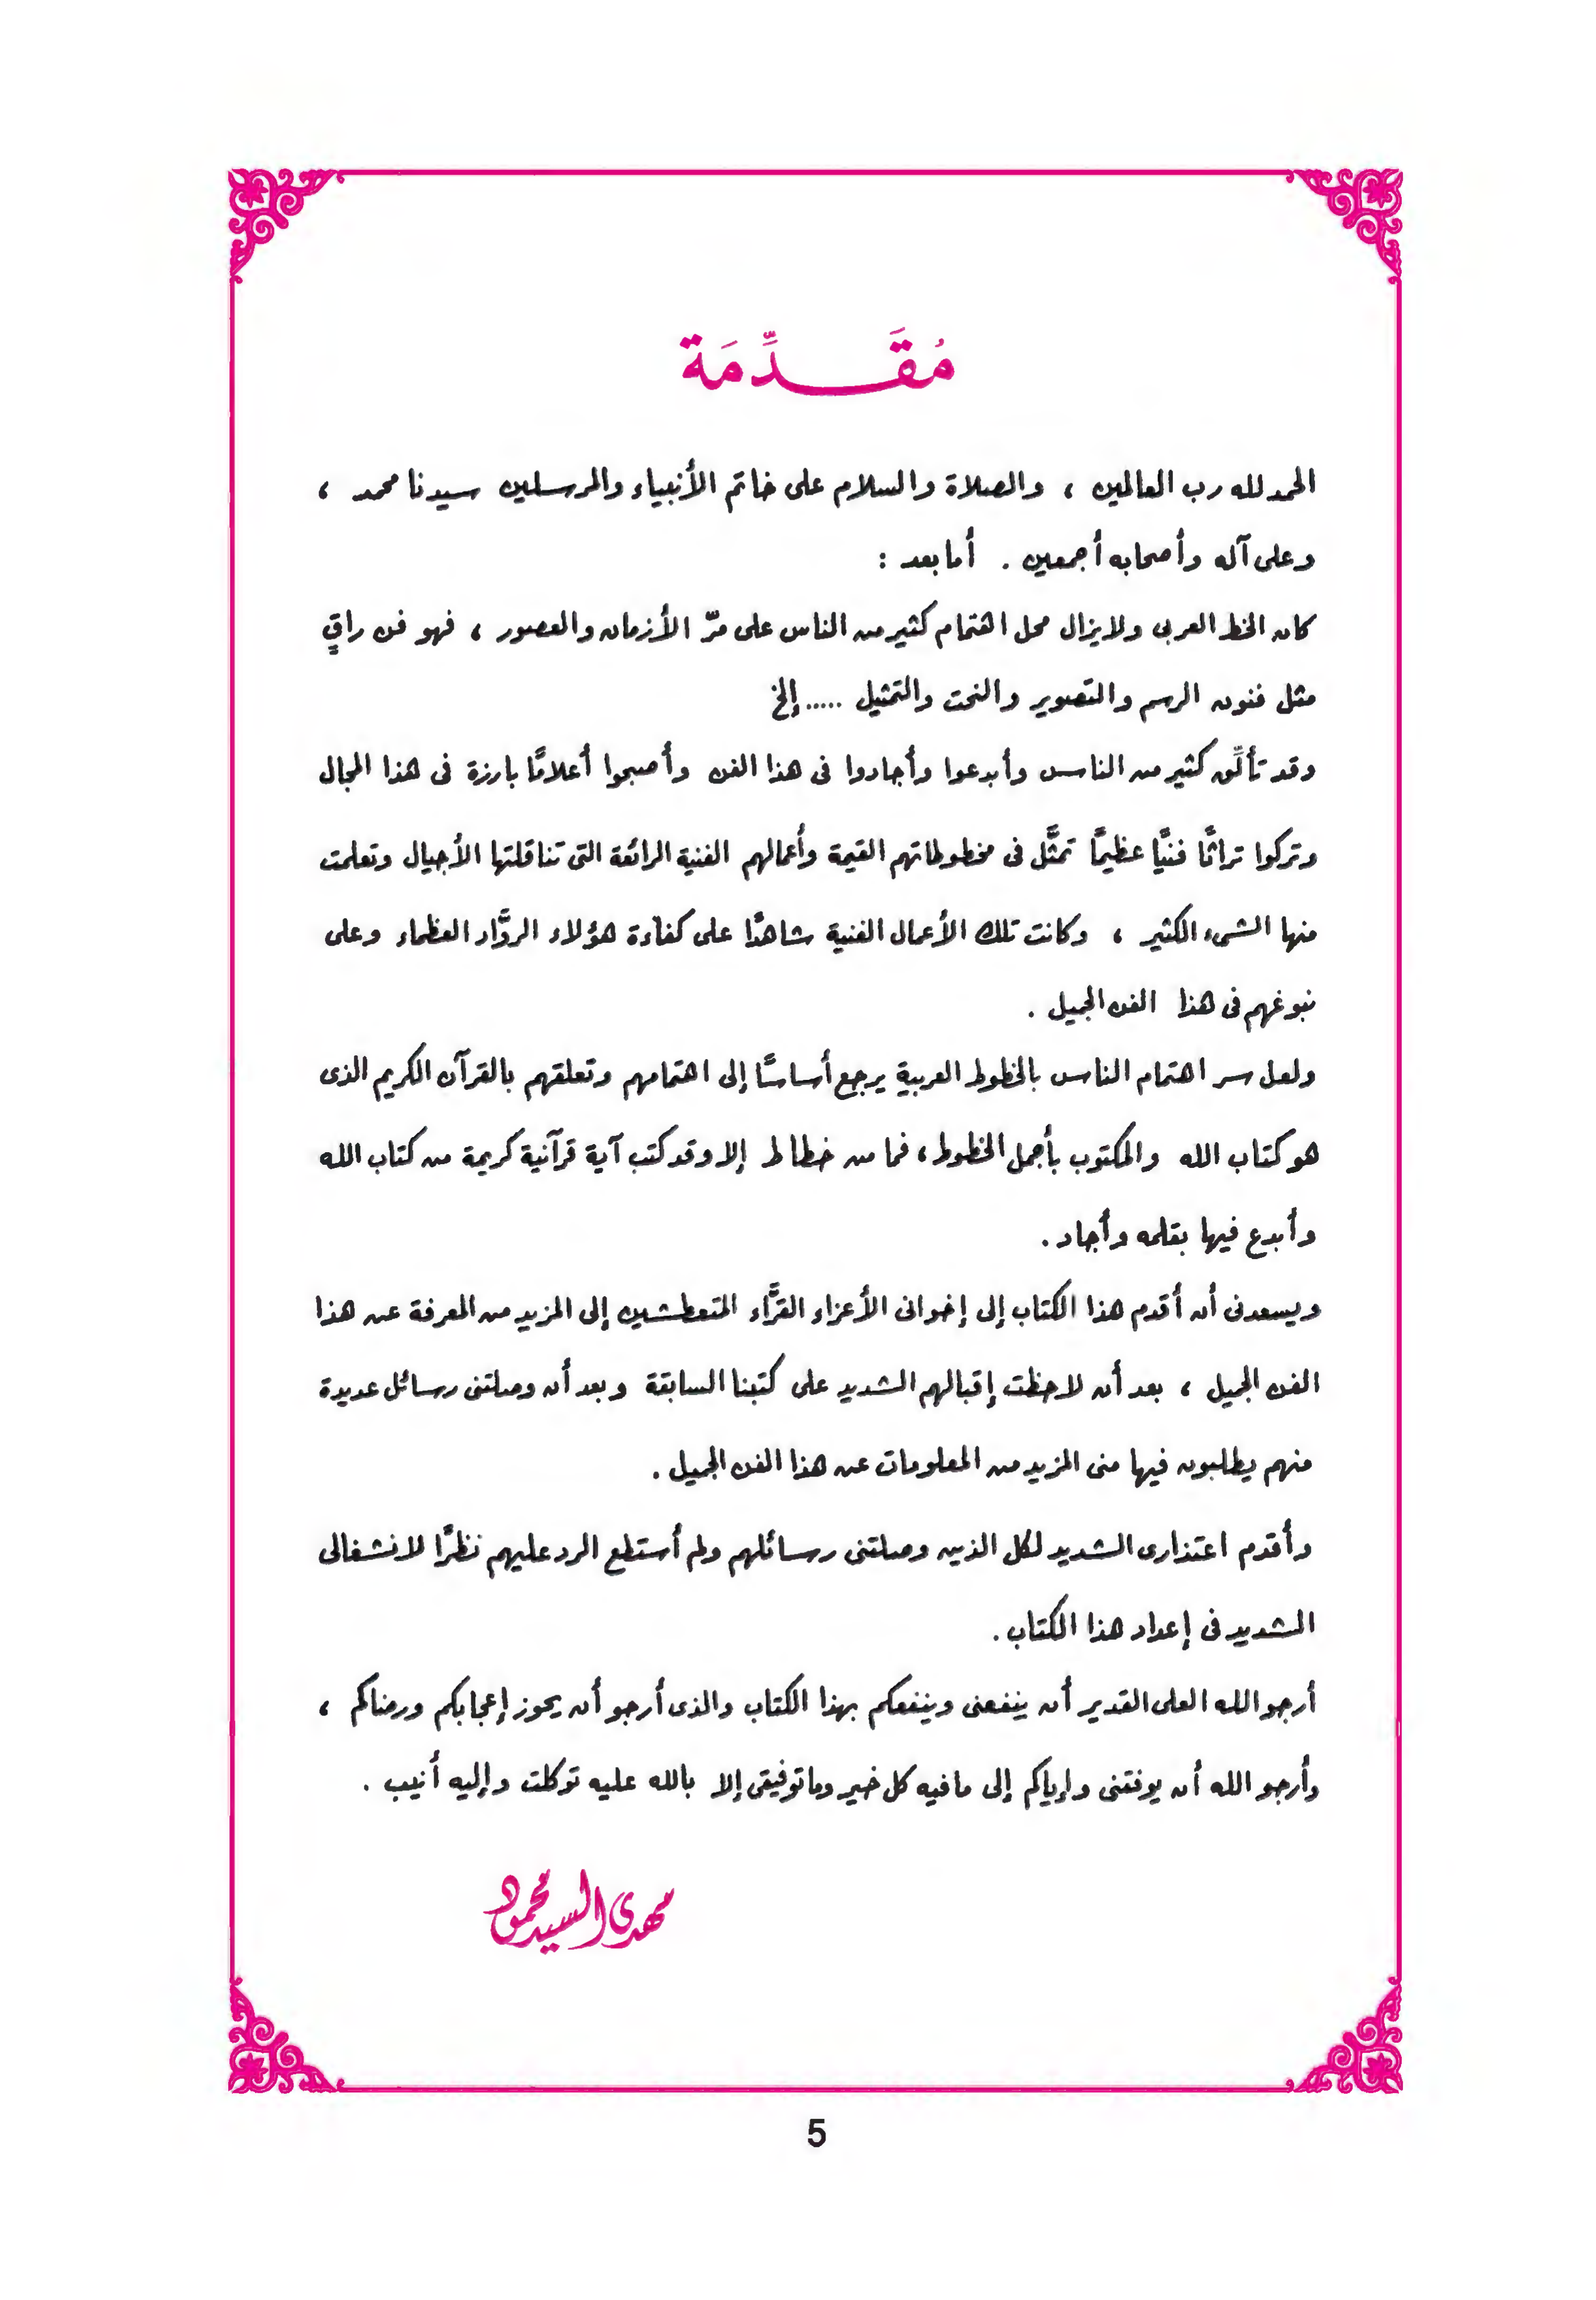 مُقَـــدِّمَة
الحمد لله رب العالمين ، والصلاة والسلام على خاتم الأنبياء والمرسلين سيدنا محمد ،
وعلى آله وأصحابه أجمعين . أما بعد :
كان الخط العربى ولايزال محل اهتمام كثير من الناس على مرّ الأزمان والعصور ، فهو فن راقٍ
مثل فنون الرسم والتصوير والنحت والتمثيل ..... إلخ
وقد تألّق كثير من الناس وأبدعوا وأجادوا فى هذا الفن وأصبحوا أعلامًا بارزة فى هذا المجال
وتركوا تراثًا فنيًّا عظيمًا تمثَّل فى مخطوطاتهم القيمة وأعمالهم الفنية الرائعة التى تناقلتها الأجيال وتعلمت
منها الشىء الكثير ، وكانت تلك الأعمال الفنية شاهدًا على كفاءة هؤلاء الروَّاد العظماء وعلى
نبوغهم فى هذا الفن الجميل .
ولعل سر اهتمام الناس بالخطوط العربية يرجع أساسًا إلى اهتمامهم وتعلقهم بالقرآن الكريم الذى
هو كتاب الله والمكتوب بأجمل الخطوط ، فما من خطاط إلا وقد كتب آية قرآنية كريمة من كتاب الله
وأبدع فيها بقلمه وأجاد .
ويسعدنى أن أقدم هذا الكتاب إلى إخوانى الأعزاء القرَّاء المتعطشين إلى المزيد من المعرفة عن هذا
الفن الجميل ، بعد أن لاحظت إقبالهم الشديد على كتبنا السابقة وبعد أن وصلتنى رسائل عديدة
منهم يطلبون فيها منى المزيد من المعلومات عن هذا الفن الجميل .
وأقدم اعتذارى الشديد لكل الذين وصلتنى رسائلهم ولم أستطع الرد عليهم نظرًا لانشغالى
الشديد فى إعداد هذا الكتاب .
أرجو الله العلى القدير أن ينفعنى وينفعكم بهذا الكتاب والذى أرجو أن يحوز إعجابكم ورضاكم ،
وأرجو الله أن يوفقنى وإياكم إلى ما فيه كل خير وما توفيقى إلا بالله عليه توكلت وإليه أنيب .
مهدى السيد محمود
5